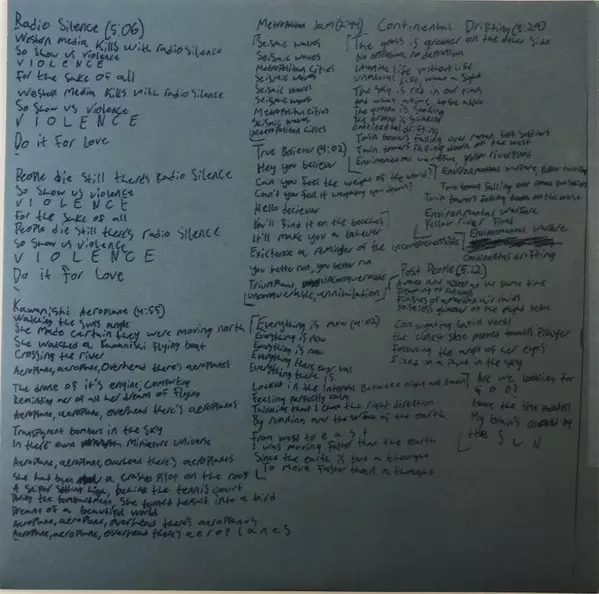 Radio Silence (5:06)
Western Media Kills With radio silence
So Show us violence
V I O L E N C E
For the Sake of all
Western Media Kills With radio silence
So Show us violence
V I O L E N C E
Do it For Love
People die Still there's Radio Silence
So Show us violence
V I O L E N C E
For the Sake of all
People die Still there's radio Silence
So Show us violence
V I O L E N C E
Do it For Love
Kawanishi Aeroplane (4:55)
Watching the suns angle
She Made certain they were moving north
She watched a Kawanishi flying boat
Crossing the river
Aeroplane, aeroplane, Overhead there's aeroplanes
The drone of it's engine, comforting
Reminding her of all her dreams of flying
Aeroplane, aeroplane, overhead there's aeroplanes
Transparent bombers in the Sky
In there own Miniature Universe
Aeroplane, aeroplane, overhead there's aeroplanes
She had been a crashed Pilot on the roof
A Sniper, behind the tennis court
During the bombardment She turned herself into a bird
Dreams of a beautiful world
Aeroplane, aeroplane, overhead there's aeroplanes
Aeroplane, aeroplane, overhead there's a e r o p l a n e s
Metropolitan Jam (2:44)
Seismic waves
Seismic waves
Metropolitan Cities
Seismic waves
Seismic waves
Seismic waves
Metropolitan cities
Seismic waves
Metropolitan cities
True Believer (4:02)
Hey you believer
Can you feel the weight of the world?
Can't you feel it weighing you down?
Hello deciever
You'll find it on the beaches
It'll make you a believer
Existence a reminder of the incomprehensible
You better run, you better run
Triumphans, unconquerable
Unconquerable, annihilation
Everything is now (4:02)
Everything is now
Everything is now
Everything there ever was
Everything there is
Locked in the interval Between night and dawn
Feeling perfectly calm
Thinking that I own the right direction
By running over the surface of the earth
From west to e a s t
I was moving faster than the earth
Since the earth is just a thought
To move faster than a thought
Continental Drifting (3:29)
The grass is greener on the other side
Life without Life
The Sky is red in our times
And what a time to be alive
The ground is Shaking
The ground is Shaking
Continental drifting
Twin towers falling over
Twin towers falling down on the west
Environmental warfare, Yellow river flood
Environmental warfare, Yellow river flood
Twin towers falling over
Twin towers falling down on the west
Environmental Warfare
Yellow river flood
Environmental Warfare
Continental drifting
Post People (5:12)
Awake and asleep at the same time
Dreaming of
Flashes of american air raids
glamour of the
Conjugating Latin verbs
the closest star moved towards Prayer
Following the angle of her eye's
Fixed on a Point in the Sky
Are we looking for
G O D?
Above the
My brain's cooked by
the S U N